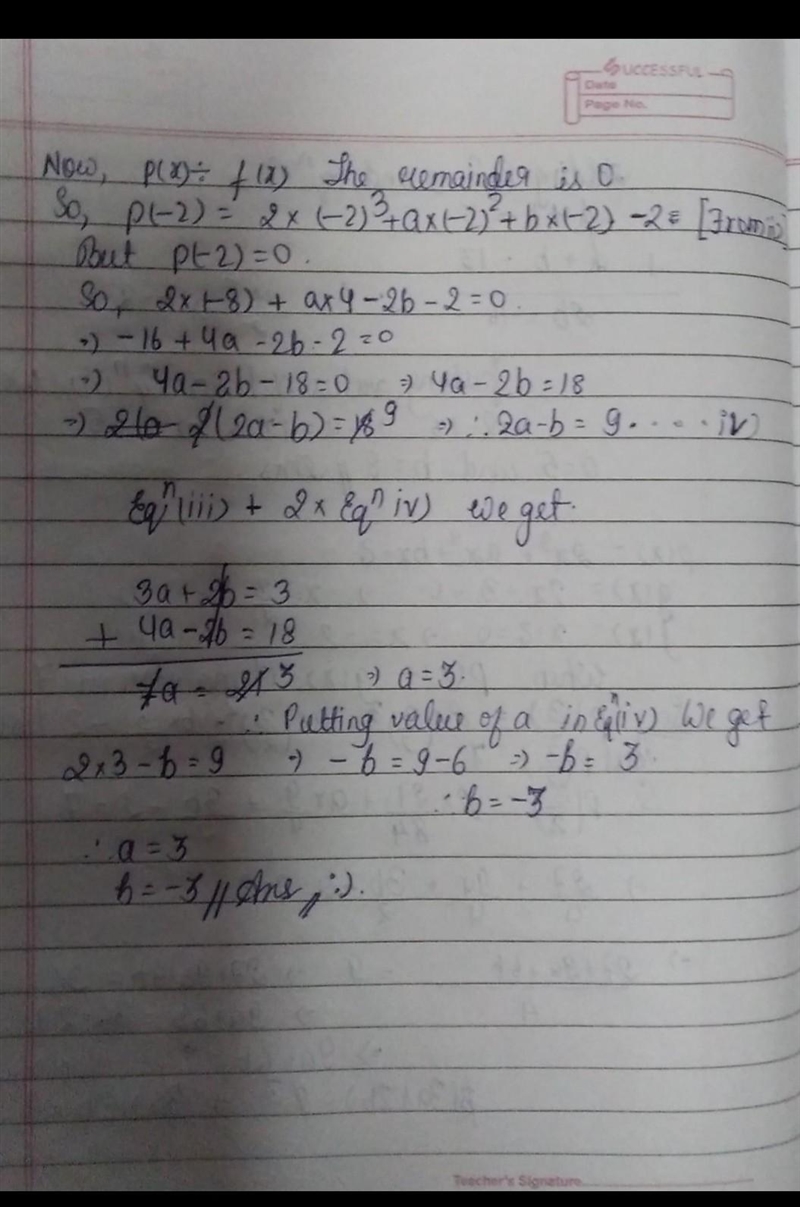 SUCCESSFUL
Date
Page No.
Now, P(x) ÷ f(x) The remainder is 0.
So, P(-2) = 2 × (-2)³ + a × (-2)² + b × (-2) - 2 = [From ii)]
But P(-2) = 0.
So, 2×(-8) + a×4 - 2b - 2 = 0.
⇒) -16 + 4a - 2b - 2 = 0
⇒) 4a - 2b - 18 = 0 ⇒ 4a - 2b = 18
⇒) 2(2a - b) = 18 9 ⇒ ∴ 2a - b = 9 ..... iv)
Eqⁿ (iii) + 2 × Eqⁿ iv) We get.
3a + 2b = 3
+ 4a - 2b = 18
7a = 21 3 ⇒ a = 3.
∴ Putting value of a in Eqⁿ(iv) We get
2×3 - b = 9 ⇒ -b = 9 - 6 ⇒ -b = 3.
∴ b = -3
∴ a = 3
b = -3 // Ans // :).
Teacher's Signature